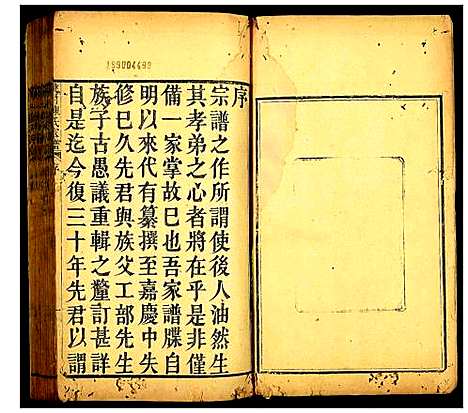 189004499
序
宗譜之作所謂使後人油然生
其孝弟之心者將在乎是非僅
備一家掌故巳也吾家譜牒自
明以來代有纂撰至嘉慶中失
修巳久先君與族父工部先生
族子古愚議重輯之釐訂甚詳
自是迄今復三十年先君以謂